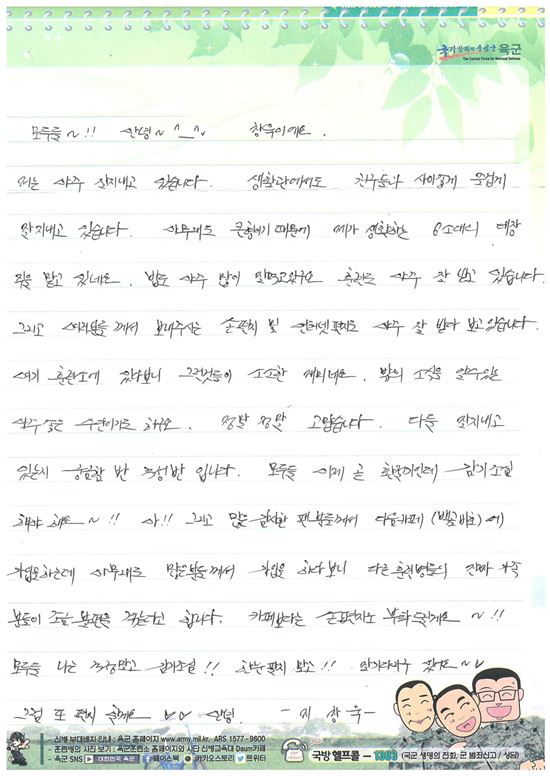 국가방위의 중심군 육군
The Central Force for National Defense
모두들~!! 안녕~^__^~ 창욱이에요.
저는 아주 잘지내고 있습니다. 생활관에서도 친구들과 사이좋게 즐겁게
잘지내고 있습니다. 아무래도 분대장이기 때문에 제가 생활하는 6소대의 대장
직을 맡고 있네요. 밥도 아주 많이 잘먹고있구요 훈련도 아주 잘 받고 있습니다.
그리고 여러분들께서 보내주시는 손편지 및 인터넷편지도 아주 잘 받아 보고있습니다.
여기 훈련소에 있다보니 그런것들이 소소한 재미네요. 밖의 소식을 알수있는
아주 좋은 수단이기도 하구요. 정말 정말 고맙습니다. 다들 잘지내고
있는지 궁금함 반 걱정 반 입니다. 모두들 이제 곧 환절기인데 감기조심
해야 해요~!! 아!! 그리고 많은 팬분들께서 다음카페 에
가입을하는데 아무래도 많은분들께서 가입을 하다보니 다른 훈련병들의 진짜 가족
분들이 조금 불편을 겪는다고 합니다. 카페보다는 손편지로 부탁드릴게요~!!
모두들 나는 걱정말고 감기조심!! 말고!!
그럼 또 편지 할게요 안녕. -지창욱-
신병 부대배치 안내 : 육군 홈페이지 www.army.mil.kr, ARS 1577-9600
훈련병의 사진 보기 : 육군훈련소 홈페이지와 사단 신병교육대 Daum카페
육군 SNS 대한민국 육군 페이스북 카카오스토리 트위터
국방헬프콜 - 1303 (국군 생명의 전화, 군 범죄신고 / 상담)